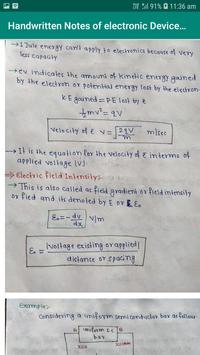 91% 11:36 am
Handwritten Notes of electronic Device...
→ 1 Joule energy can't apply to electronics because of very
less capacity
→ ev indicates the amount of kinetic energy gained
by the electron or potential energy lost by the electron.
KE gained = PE lost by ē
½mv² = qV
velocity of ē v = √(2qV/m) m/sec
→ It is the equation for the velocity of ē interms of
applied voltage (V)
⇒ Electric field Intensity:-
→ This is also called as field gradient or field intensity
or fied and its denoted by E or Ɛ, E₀
E₀ = -dv/dx V/m
E₀ = |voltage existing or applied|
distance or spacing
Example:-
Considering a uniform semiconductor bar as follow
uniform S.C
bar